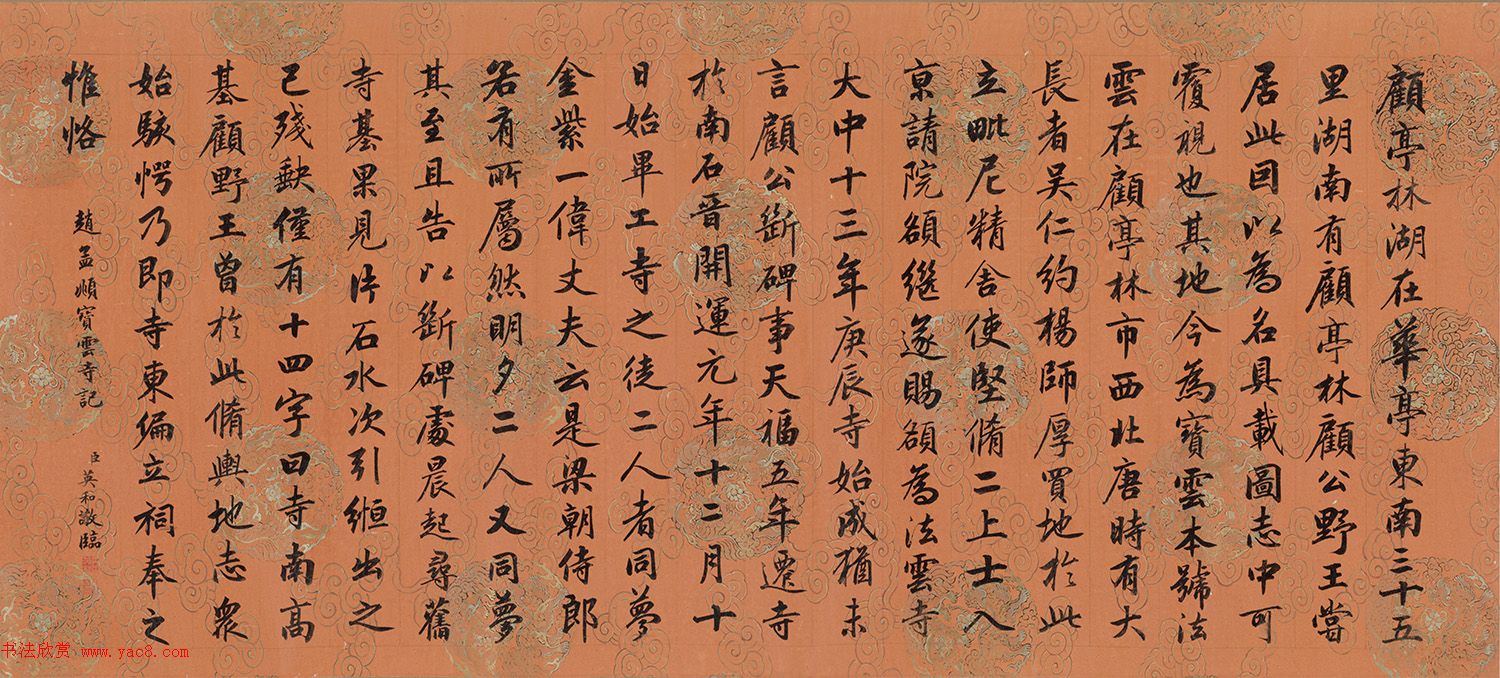 顧亭林湖在華亭東南三十五
里湖南有顧亭林顧公野王嘗
居此因以為名具載圖志中可
覆視也其地今為寶雲本號法
雲在顧亭林市西北唐時有大
長者吳仁約楊師厚買地於此
立毗尼精舍使堅脩二上士入
京請院額繼遂賜額為法雲寺
大中十三年庚辰寺始成猶未
言顧公斷碑事天福五年遷寺
於南石晉開運元年十二月十
日始畢工寺之徒二人者同夢
金紫一偉丈夫云是梁朝侍郎
若有所屬然明夕二人又同夢
其至且告以斷碑處晨起尋舊
寺基果見片石水次引縆出之
已殘缺僅有十四字曰寺南高
基顧野王曾於此脩輿地志眾
始駭愕乃即寺東偏立祠奉之
惟恪
趙孟順寶雲寺記
臣英和敬臨
书法欣赏 www.yac8.com